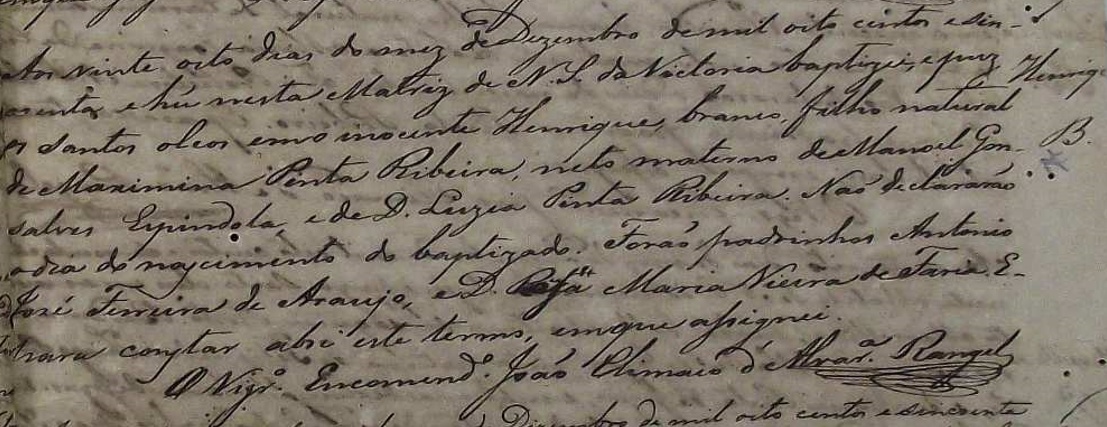 Aos vinte oito dias do mez de Dezembro de mil oito centos e sin-
coenta e hú nesta Matriz de N. S. da Victoria baptizei, e puz
os santos oleos em o inocente Henrique, branco, filho natural
de Maximina Pinta Ribeira, neto materno de Manoel Gon-
salves Espindola, e de D. Luzia Pinta Ribeira. Naõ declararaõ
o dia do nascimento do baptizado. Foraõ padrinhos Antonio
José Ferreira de Araujo, e D. Maria Vieira de Faria. E
para constar abri este termo, em que assignei.
O Vigr.º Encomend.º Joaõ Climaco d'Alvar.ª Rangel
Henriq
B.
Dezembro de mil oito centos e sincoenta